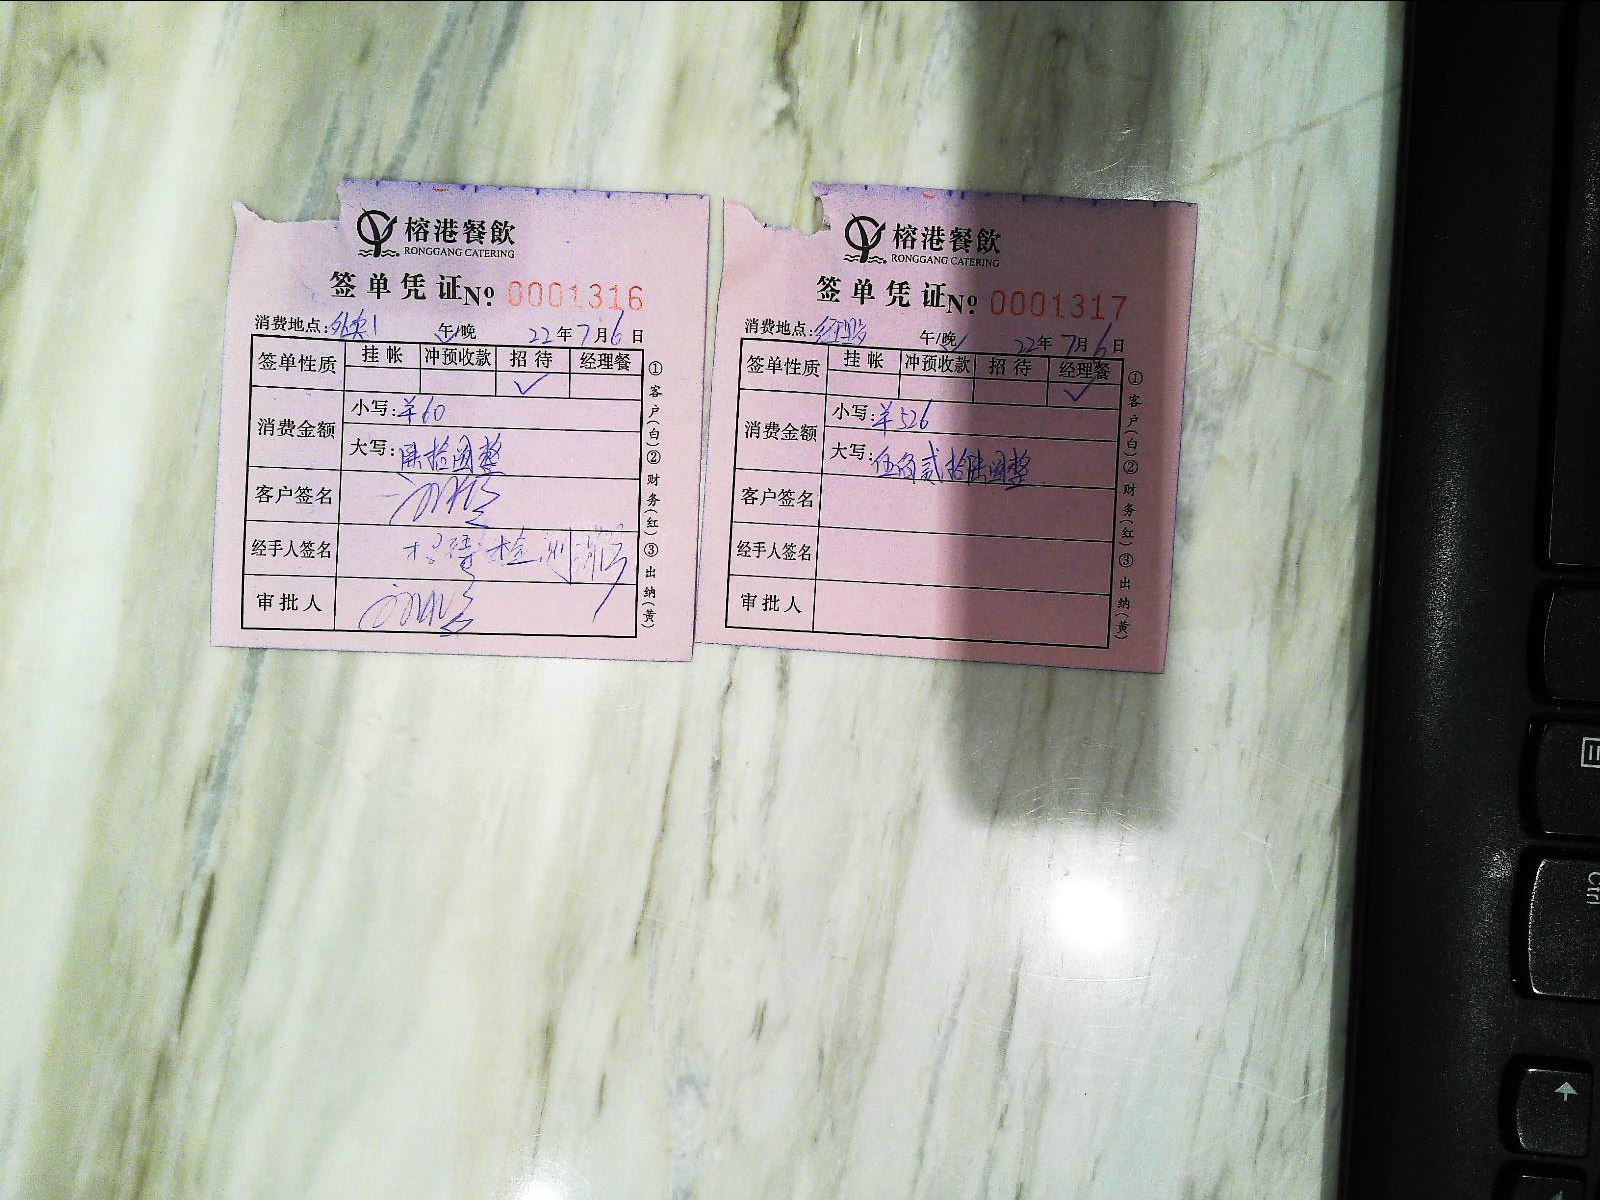 榕港餐飲
RONGGANG CATERING
签单凭证№ 0001316
消费地点:外卖1 午/晚 22年7月6日
签单性质 挂帐 冲预收款 招待 经理餐
✓
消费金额 小写:¥60
大写:陆拾圆整
客户签名
经手人签名
审批人
①客户(白)②财务(红)③出纳(黄)
榕港餐飲
RONGGANG CATERING
签单凭证№ 0001317
消费地点:经理 午/晚 22年7月6日
签单性质 挂帐 冲预收款 招待 经理餐
✓
消费金额 小写:¥526
大写:伍佰贰拾陆圆整
客户签名
经手人签名
审批人
①客户(白)②财务(红)③出纳(黄)
Ctrl